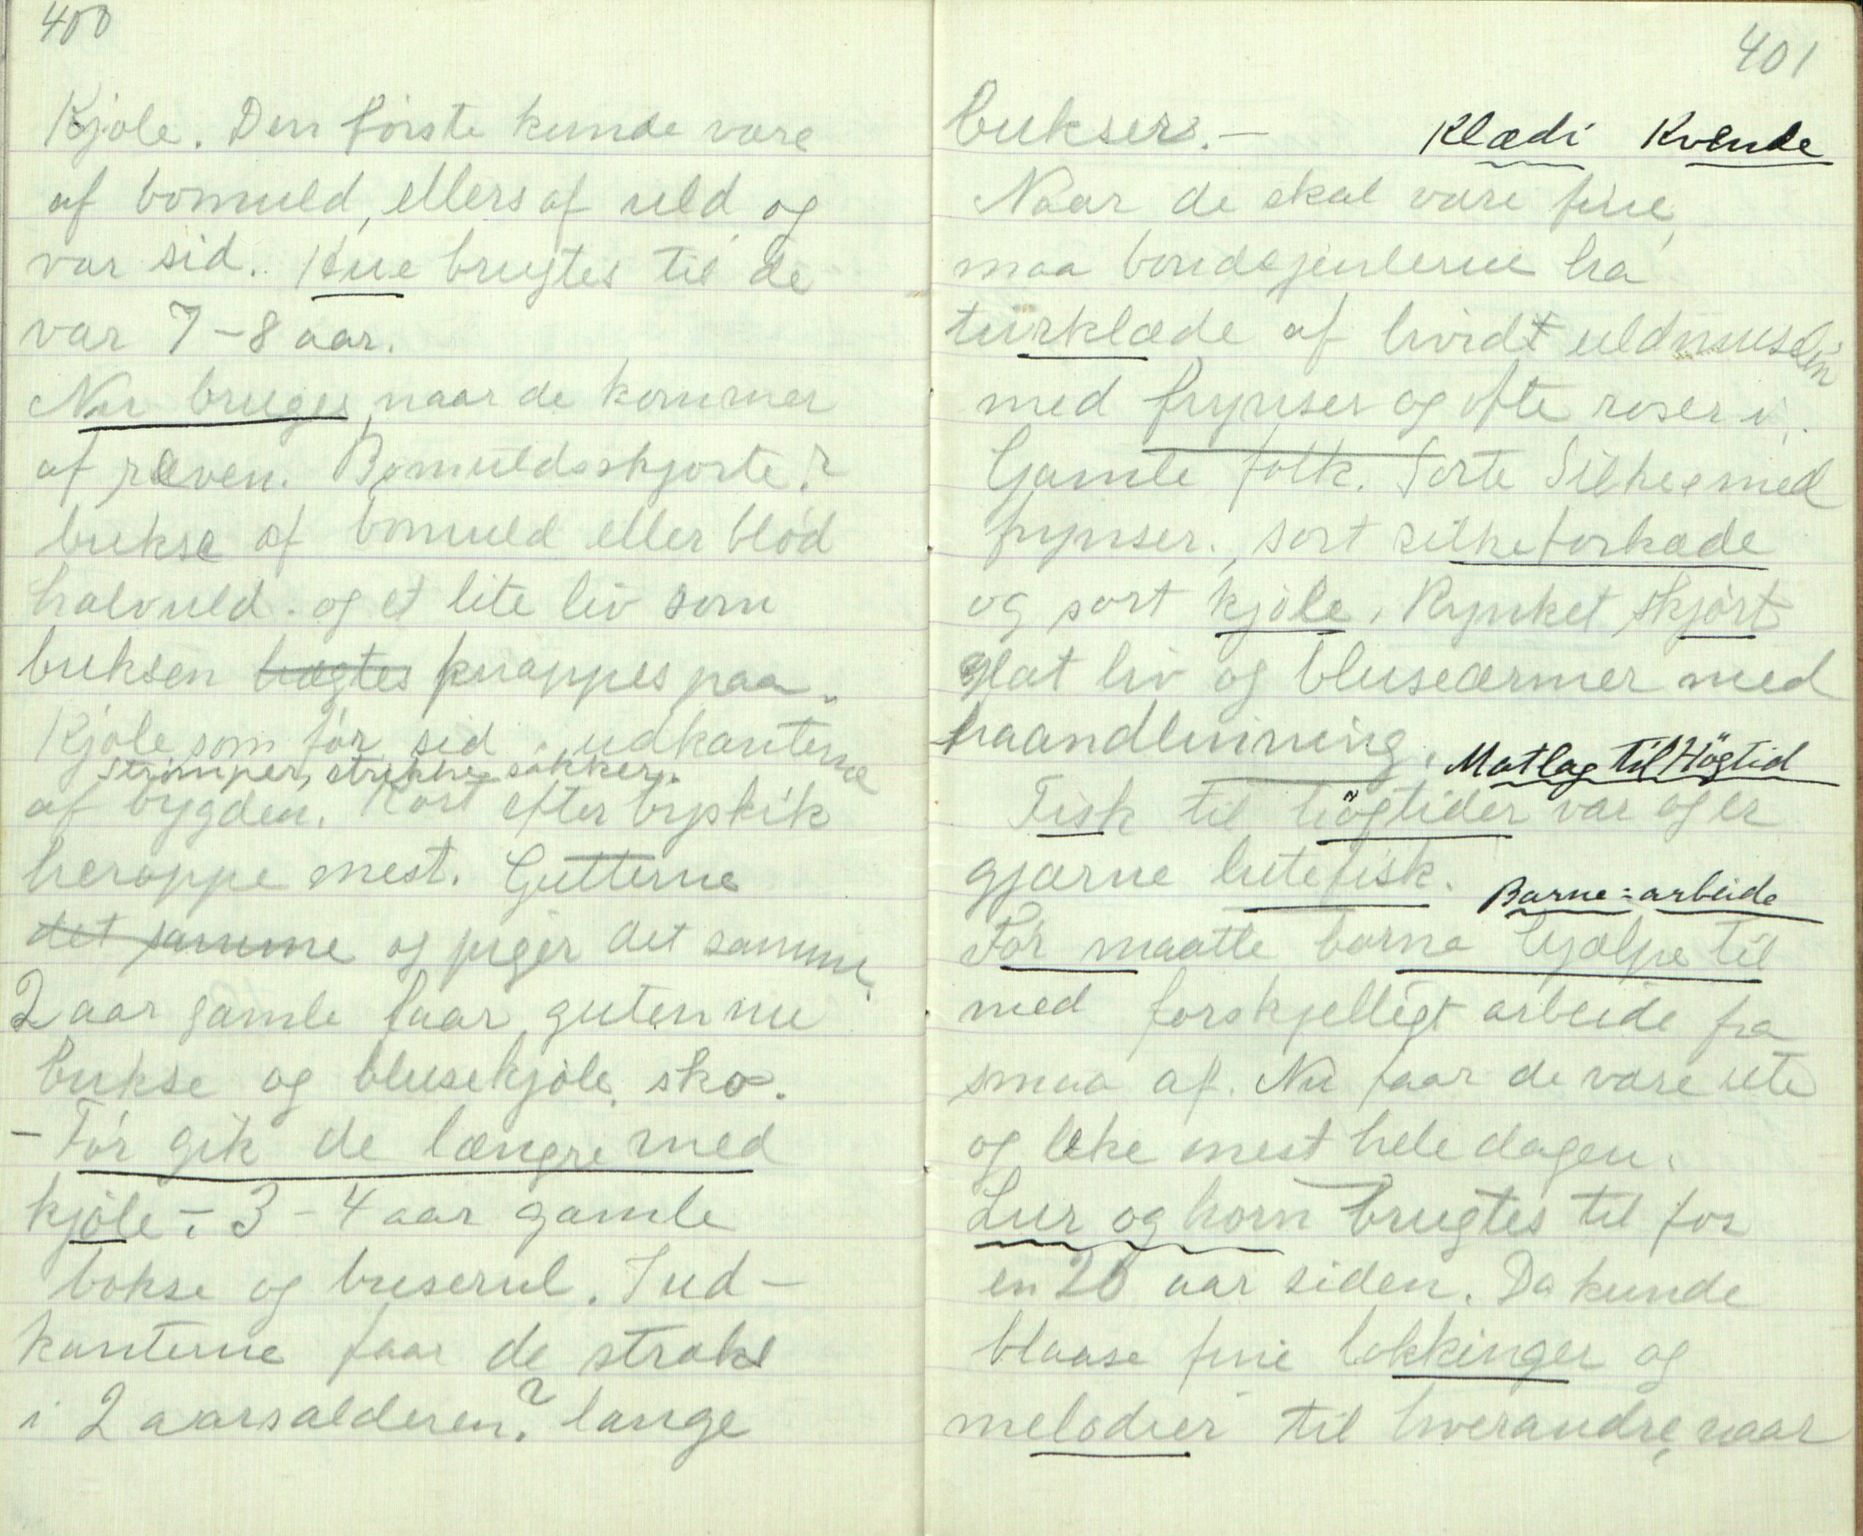 400
Kjole. Den første kunde være
af bomuld, ellers af uld og
var sid. Hue brugtes til de
var 7-8 aar.
Nu bruges naar de kommer
af ræven. Bomuldsskjorte?
bukse af bomuld eller blød
halvuld. og et lite liv som
buksen hægtes knappes paa.
Kjole som før sid. udkanterne
strømper, strikke sokker.
af bygden. Kort efter byskik
heroppe mest. Gutterne
det samme og piger det samme.
2 aar gamle faar guten nu
bukse og blusekjole, sko.
- Før gik de længre med
kjole -: 3-4 aar gamle
bokse og buserul. I ud-
kanterne faar de straks
i 2 aarsalderen? lange
401
bukser. -
Klædi Kvende
Naar de skal være fine,
maa bondegjenterne ha
turklæde af hvidt uldmuselin
med frynser og ofte roser i.
Gamle folk. Sorte Silke med
frynser., sort silkeforklæde
og sort kjole. Rynket skjørt
glat liv og bluseærmer med
haandlinning.
Matlag til Högtid
Fisk til høgtider var og er
gjærne lutefisk.
Barne=arbeide
Før maatte barna hjælpe til
med forskjelligt arbeide fra
smaa af. Nu faar de være ute
og leke mest hele dagen.
Lur og horn brugtes til for
en 20 aar siden. Da kunde
blaase fine lokkinger og
melodier til hverandre, naar